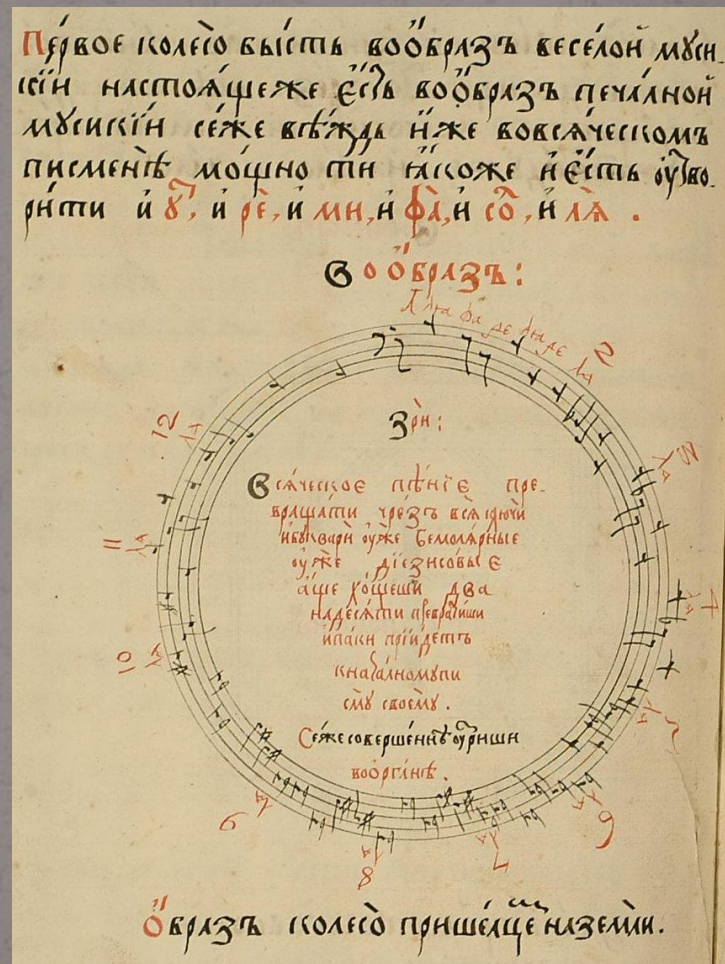 Пе́рвое колесо̀ бы́сть воо́бразъ весе́лой мꙋси-
кі́и настоѧ́щеже є҆́сть воо́бразъ печа́лной
мꙋсикі́и се́же вѣ́ждь и҆́же вовсѧ́ческомъ
писменѣ̀ мо́щно тѝ ꙗ҆́коже и҆ є҆́сть ᲂу҆тво-
ри́ти и҆ у҆̀т, и҆ рѐ, и҆ ми, и҆ фа̀, и҆ со̀л, и҆ лѧ̀.
Воо́бразъ:
лѧ фа ре
2
Зрѝ:
Всѧ́ческое пѣ́нїе пре-
враща́ти чрезъ всѧ̀ клю́чи
и҆бꙋкварѝ ᲂу҆́же бемолѧ́рные
ᲂу҆́же дїе́зисовые
а҆́ще хо́щеши два
на́десѧти преврати́ши
и҆па́ки прїи́детъ
кнача́лномꙋпи
смꙋ̀ своемꙋ̀.
Се́же соверше́ннѣ ᲂу҆́зриши
воѻ҆рга́нѣ.
3
лѧ
4
лѧ
5
лѧ
6
лѧ
7
лѧ
8
лѧ
9
лѧ
10
лѧ
11
лѧ
12
лѧ
О҆́бразъ колесо̀ прише́дще на́земли.